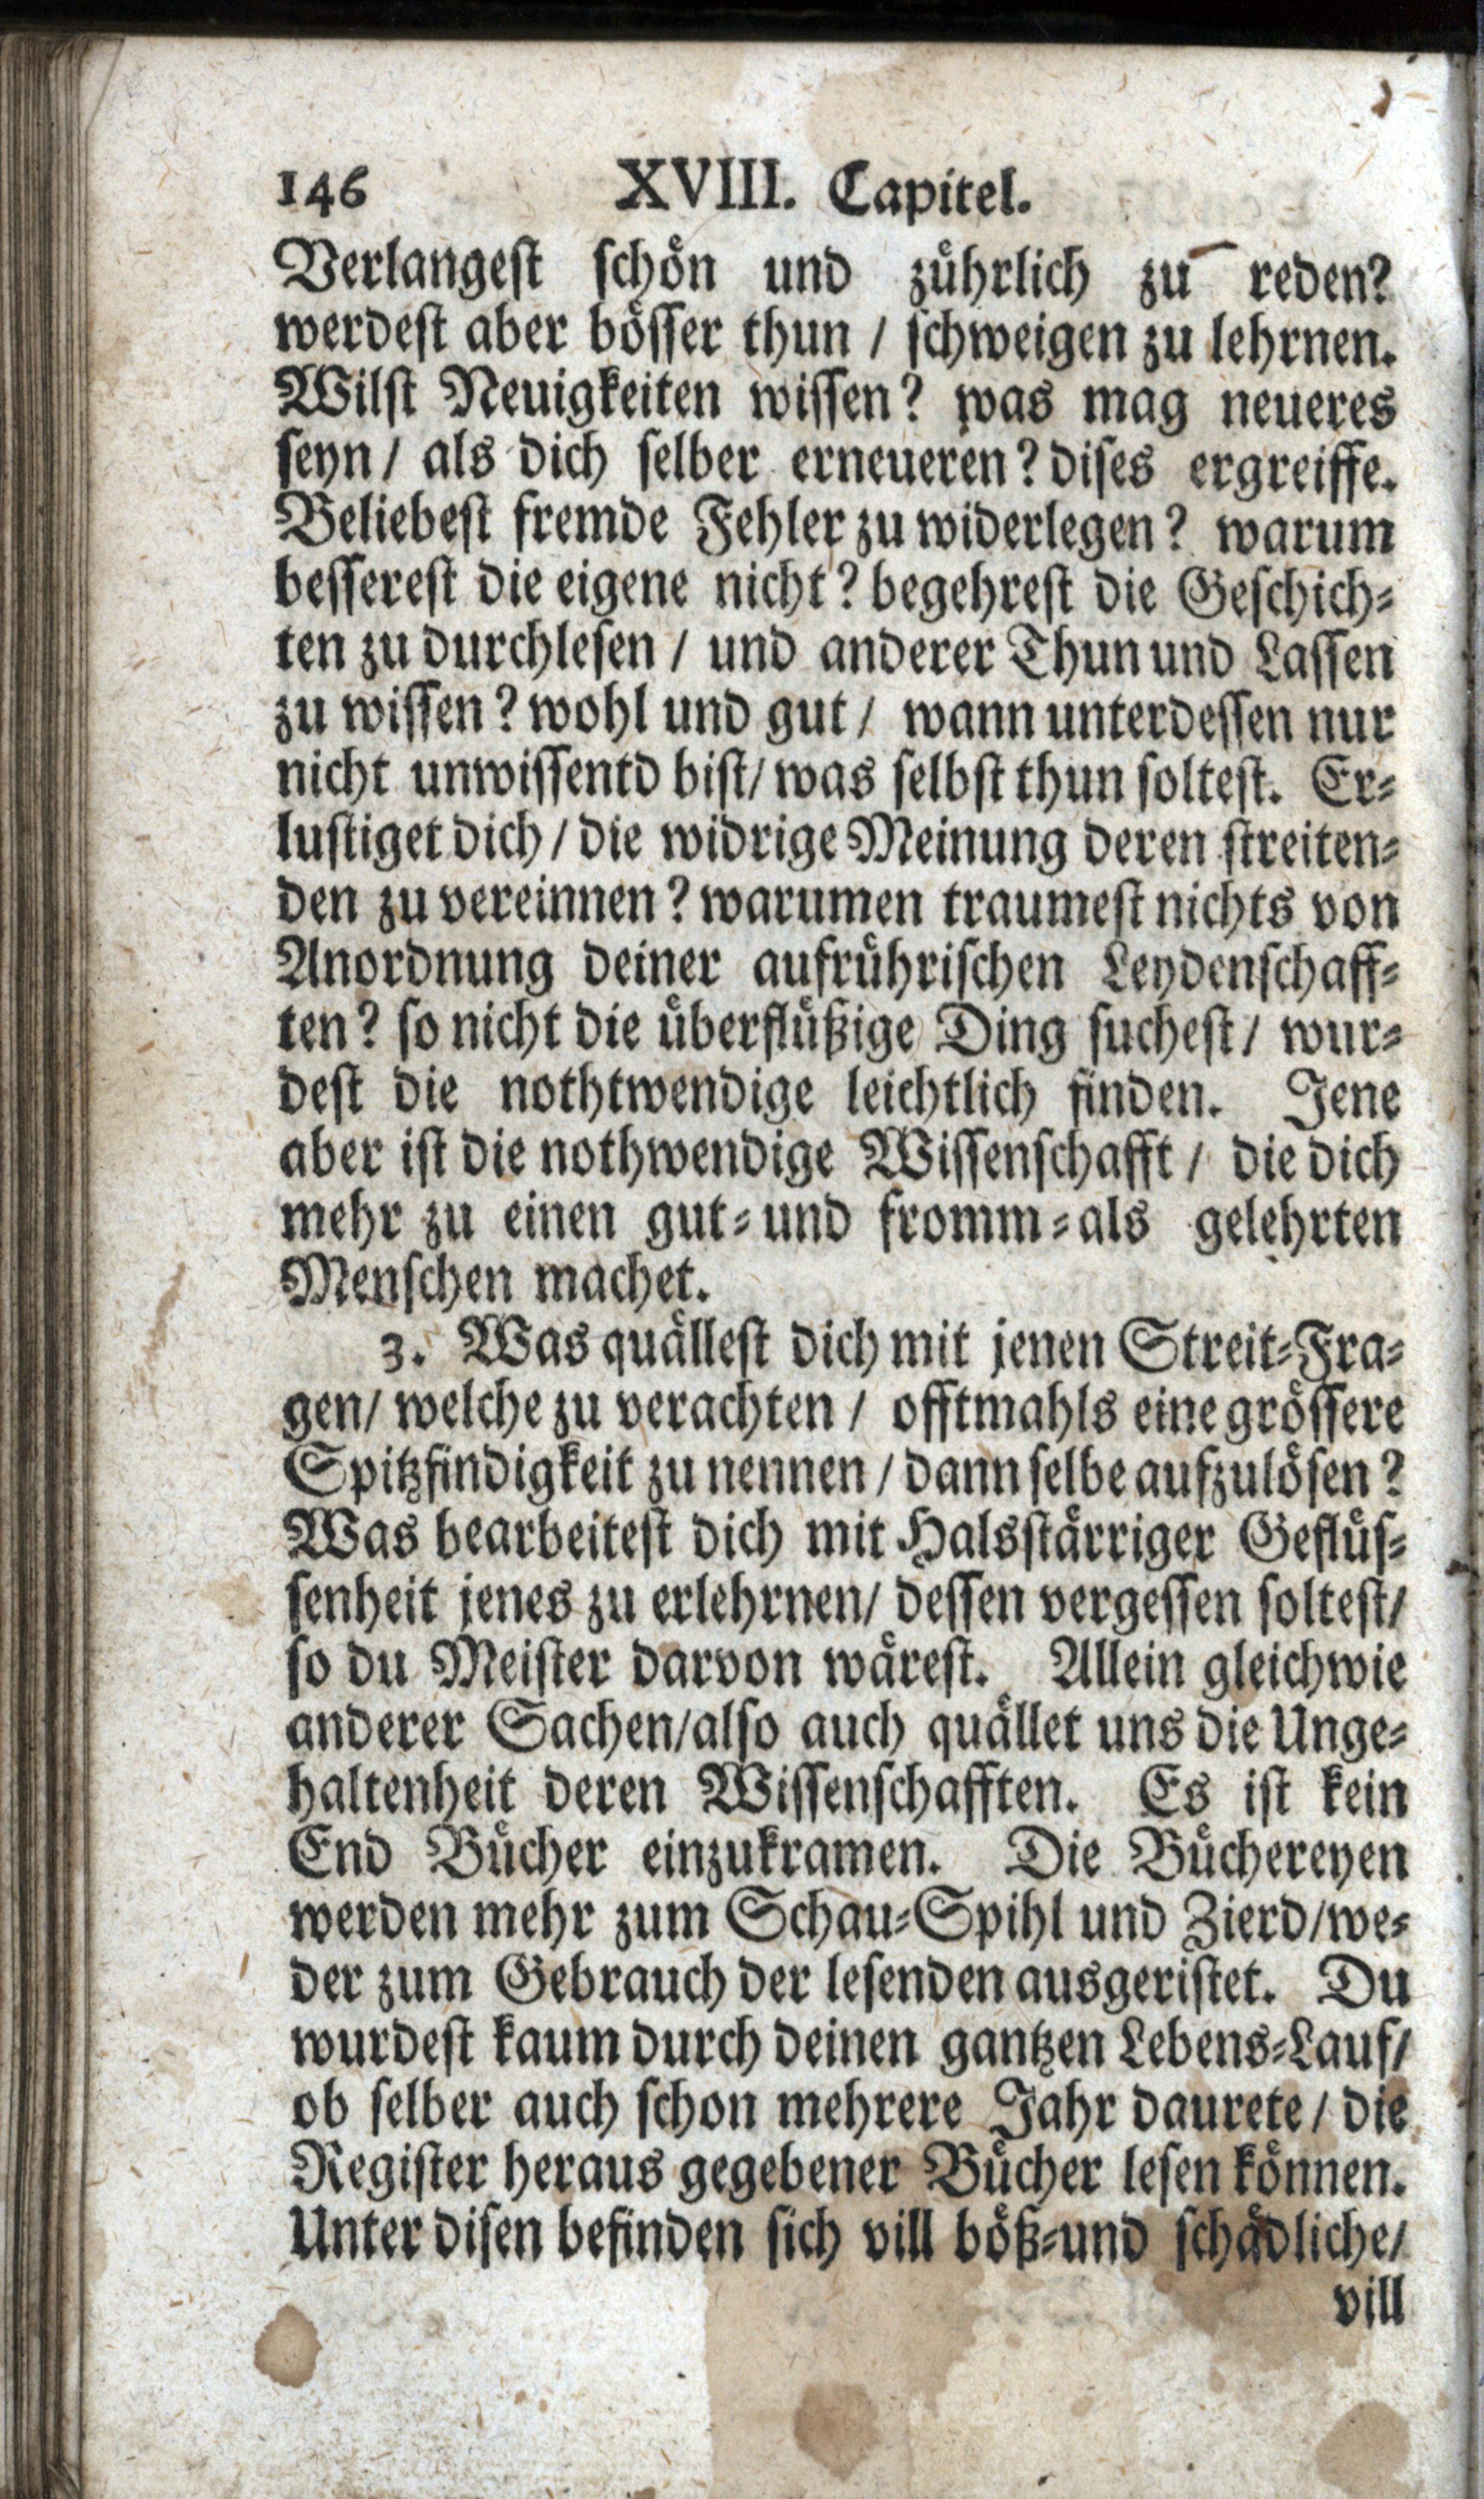 146 XVIII. Capitel.
Verlangest schön und zührlich zu reden?
werdest aber bösser thun / schweigen zu lehrnen.
Wilst Neuigkeiten wissen? was mag neueres
seyn / als dich selber erneueren? dises ergreiffe.
Beliebest fremde Fehler zu widerlegen? warum
besserest die eigene nicht? begehrest die Geschich-
ten zu durchlesen / und anderer Thun und Lassen
zu wissen? wohl und gut / wann unterdessen nur
nicht unwissentd bist / was selbst thun soltest. Er-
lustiget dich / die widrige Meinung deren streiten-
den zu vereinnen? warumen traumest nichts von
Anordnung deiner aufrührischen Leydenschaff-
ten? so nicht die überflüßige Ding suchest / wur-
dest die nothtwendige leichtlich finden. Jene
aber ist die nothwendige Wissenschafft / die dich
mehr zu einen gut-und fromm-als gelehrten
Menschen machet.
3. Was quällest dich mit jenen Streit-Fra-
gen / welche zu verachten / offtmahls eine grössere
Spitzfindigkeit zu nennen / dann selbe aufzulösen?
Was bearbeitest dich mit Halsstärriger Geflüs-
senheit jenes zu erlehrnen / dessen vergessen soltest /
so du Meister darvon wärest. Allein gleichwie
anderer Sachen / also auch quället uns die Unge-
haltenheit deren Wissenschafften. Es ist kein
End Bücher einzukramen. Die Büchereyen
werden mehr zum Schau-Spihl und Zierd / we-
der zum Gebrauch der lesenden ausgeristet. Du
wurdest kaum durch deinen gantzen Lebens-Lauf /
ob selber auch schon mehrere Jahr daurete / die
Register heraus gegebener Bücher lesen können.
Unter disen befinden sich vill böß-und schädliche /
vill